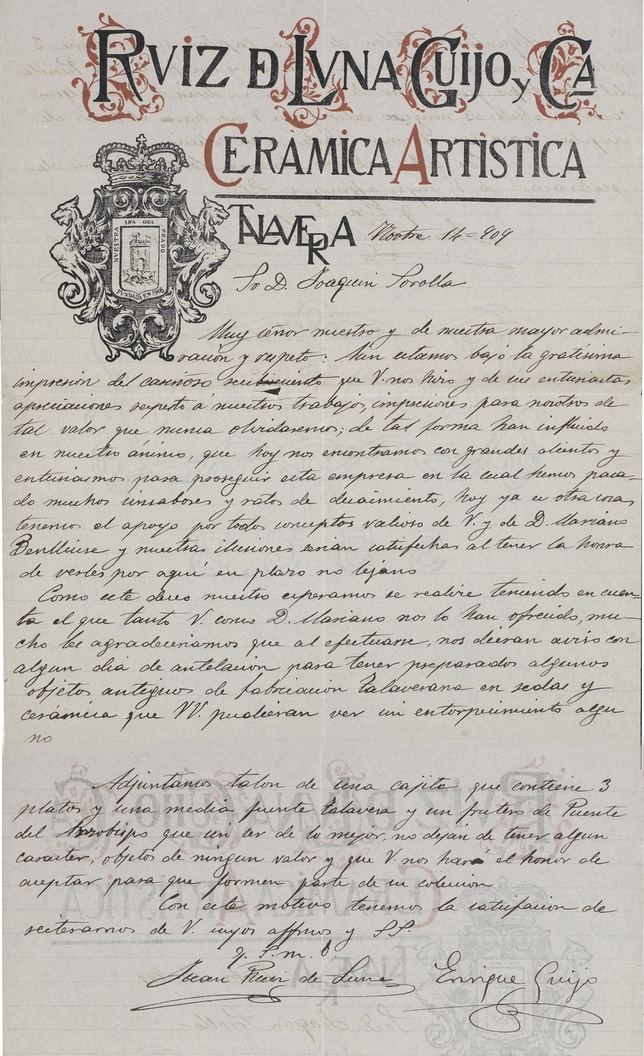 RVIZ DE LVNA GUIJO y Cª
CERÀMICA ARTÌSTICA
NUESTRA SRA DEL PRADO
FUNDADA EN 1908
TALAVERA Novbre 14=909
Sr D. Joaquin Sorolla
Muy señor nuestro y de nuestra mayor admi-
ración y respeto: Aun estamos bajo la gratisima
impresion del cariñoso recibimiento que V. nos hizo y de sus entusiastas
apreciaciones respecto á nuestros trabajos, impresiones para nosotros de
tal valor que nunca olvidaremos; de tal forma han influido
en nuestro ánimo, que hoy nos encontramos con grandes alientos y
entusiasmos para proseguir esta empresa en la cual hemos pasa-
do muchos sinsabores y ratos de decaimiento, hoy ya es otra cosa,
tenemos el apoyo por todos conceptos valioso de V. y de D. Mariano
Benlliure y nuestras ilusiones serian satisfechas al tener la honra
de verles por aquí en plazo no lejano
Como este deseo nuestro esperamos se realice teniendo en cuen-
ta el que tanto V. como D. Mariano nos lo han ofrecido, mu-
cho les agradeceriamos que al efectuarse, nos dieran aviso con
algun dia de antelacion para tener preparados algunos
objetos antiguos de fabricacion talaverana en sedas y
cerámica que VV. pudieran ver sin entorpecimiento algu
no
Adjuntamos talon de una cajita que contiene 3
platos y una media fuente talavera y un frutero de Puente
del Arzobispo que sin ser de lo mejor, no dejan de tener algun
caracter, objetos de ningun valor y que V. nos hará el honor de
aceptar para que formen parte de su colecion
Con este motivo tenemos la satisfacion de
reiterarnos de V. suyos affmos y SS.
q. s. m. b.
Juan Ruiz de Luna Enrique Guijo